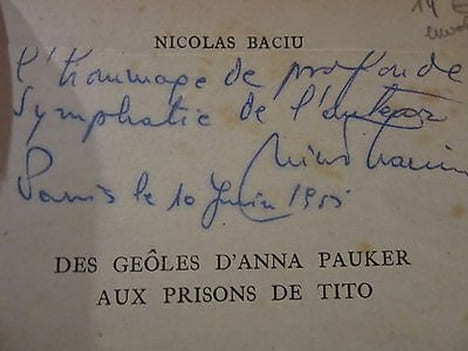 14 E
NICOLAS BACIU
l'hommage de profonde
symphatie de l'auteor
Paris le 10 Juin 1951
DES GEÔLES D'ANNA PAUKER
AUX PRISONS DE TITO